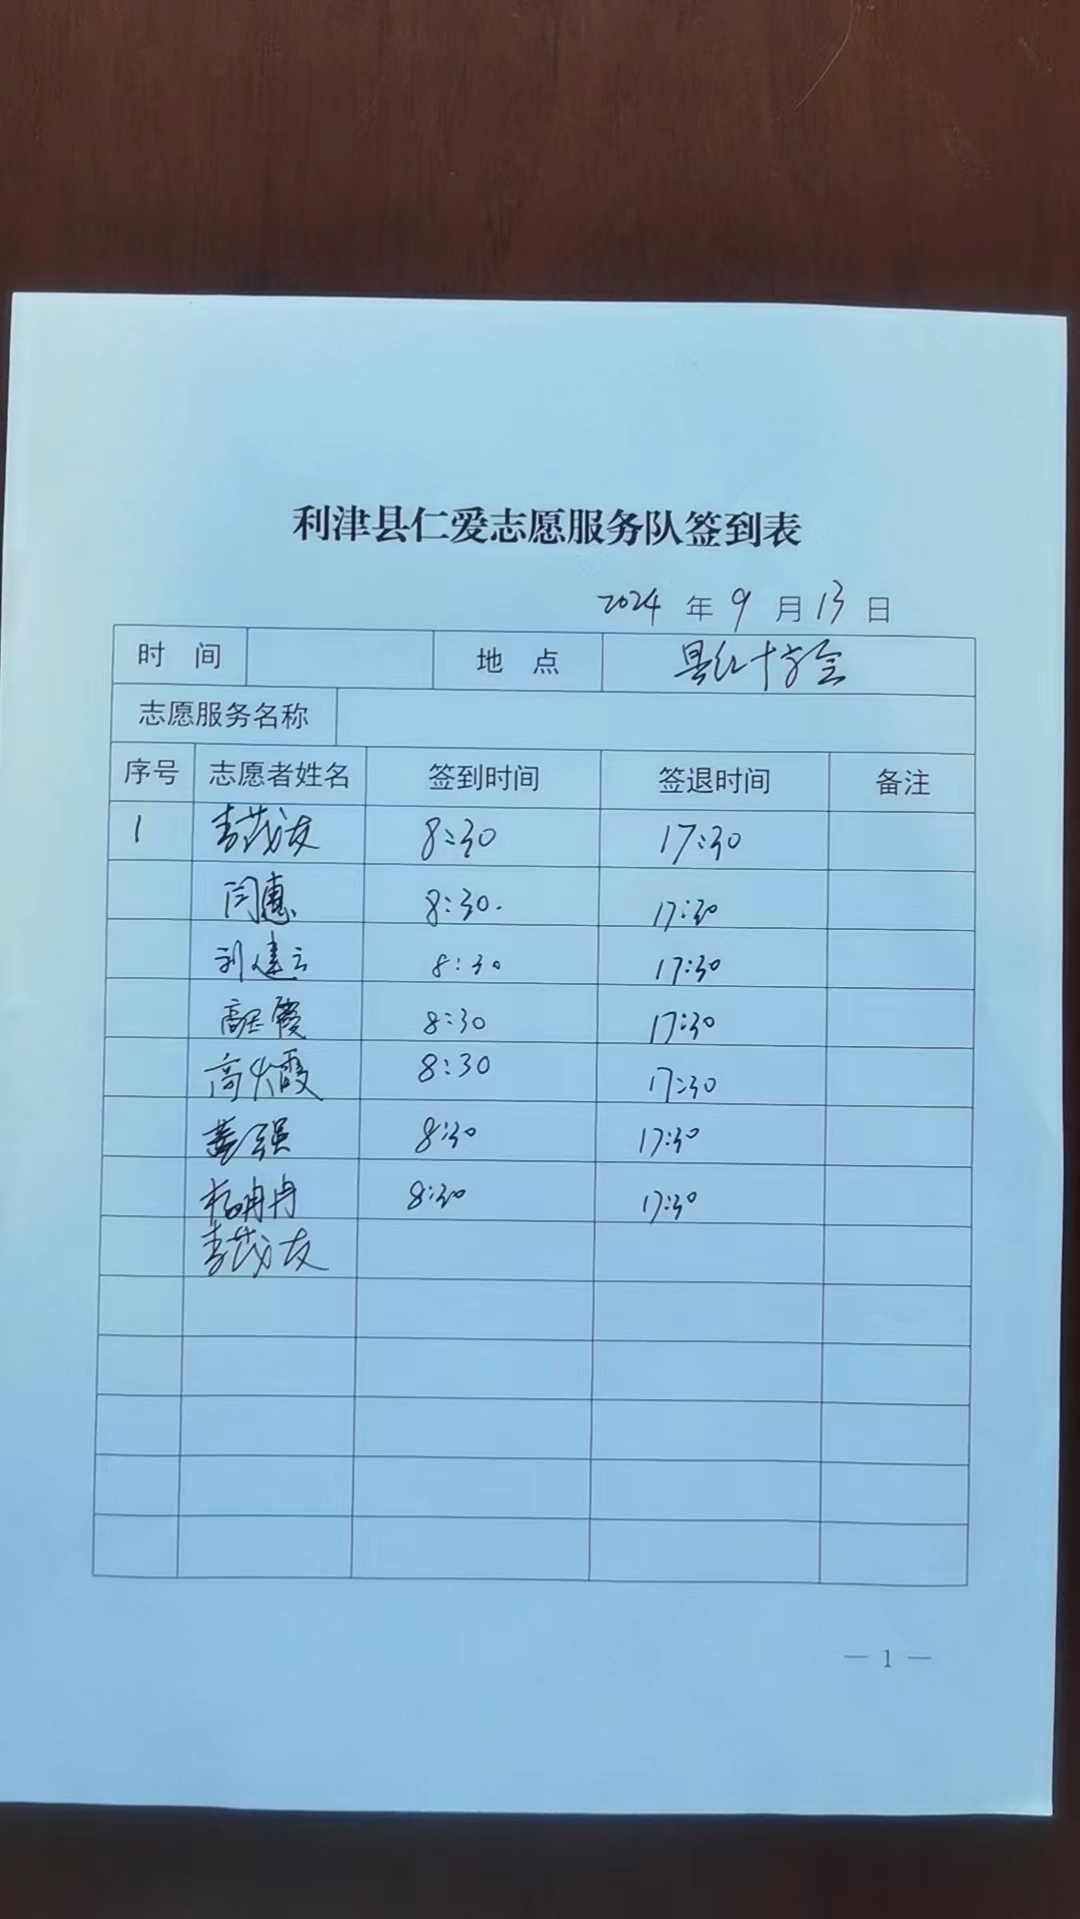 利津县仁爱志愿服务队签到表
2024 年 9 月 13 日
时 间 地 点 县红十字会
志愿服务名称
序号 志愿者姓名 签到时间 签退时间 备注
1 李茂友 8:30 17:30
闫惠 8:30. 17:30
刘建云 8:30 17:30
高 霞 8:30 17:30
高 霞 8:30 17:30
姜强 8:30 17:30
杨冉冉 8:30 17:30
李茂友
— 1 —